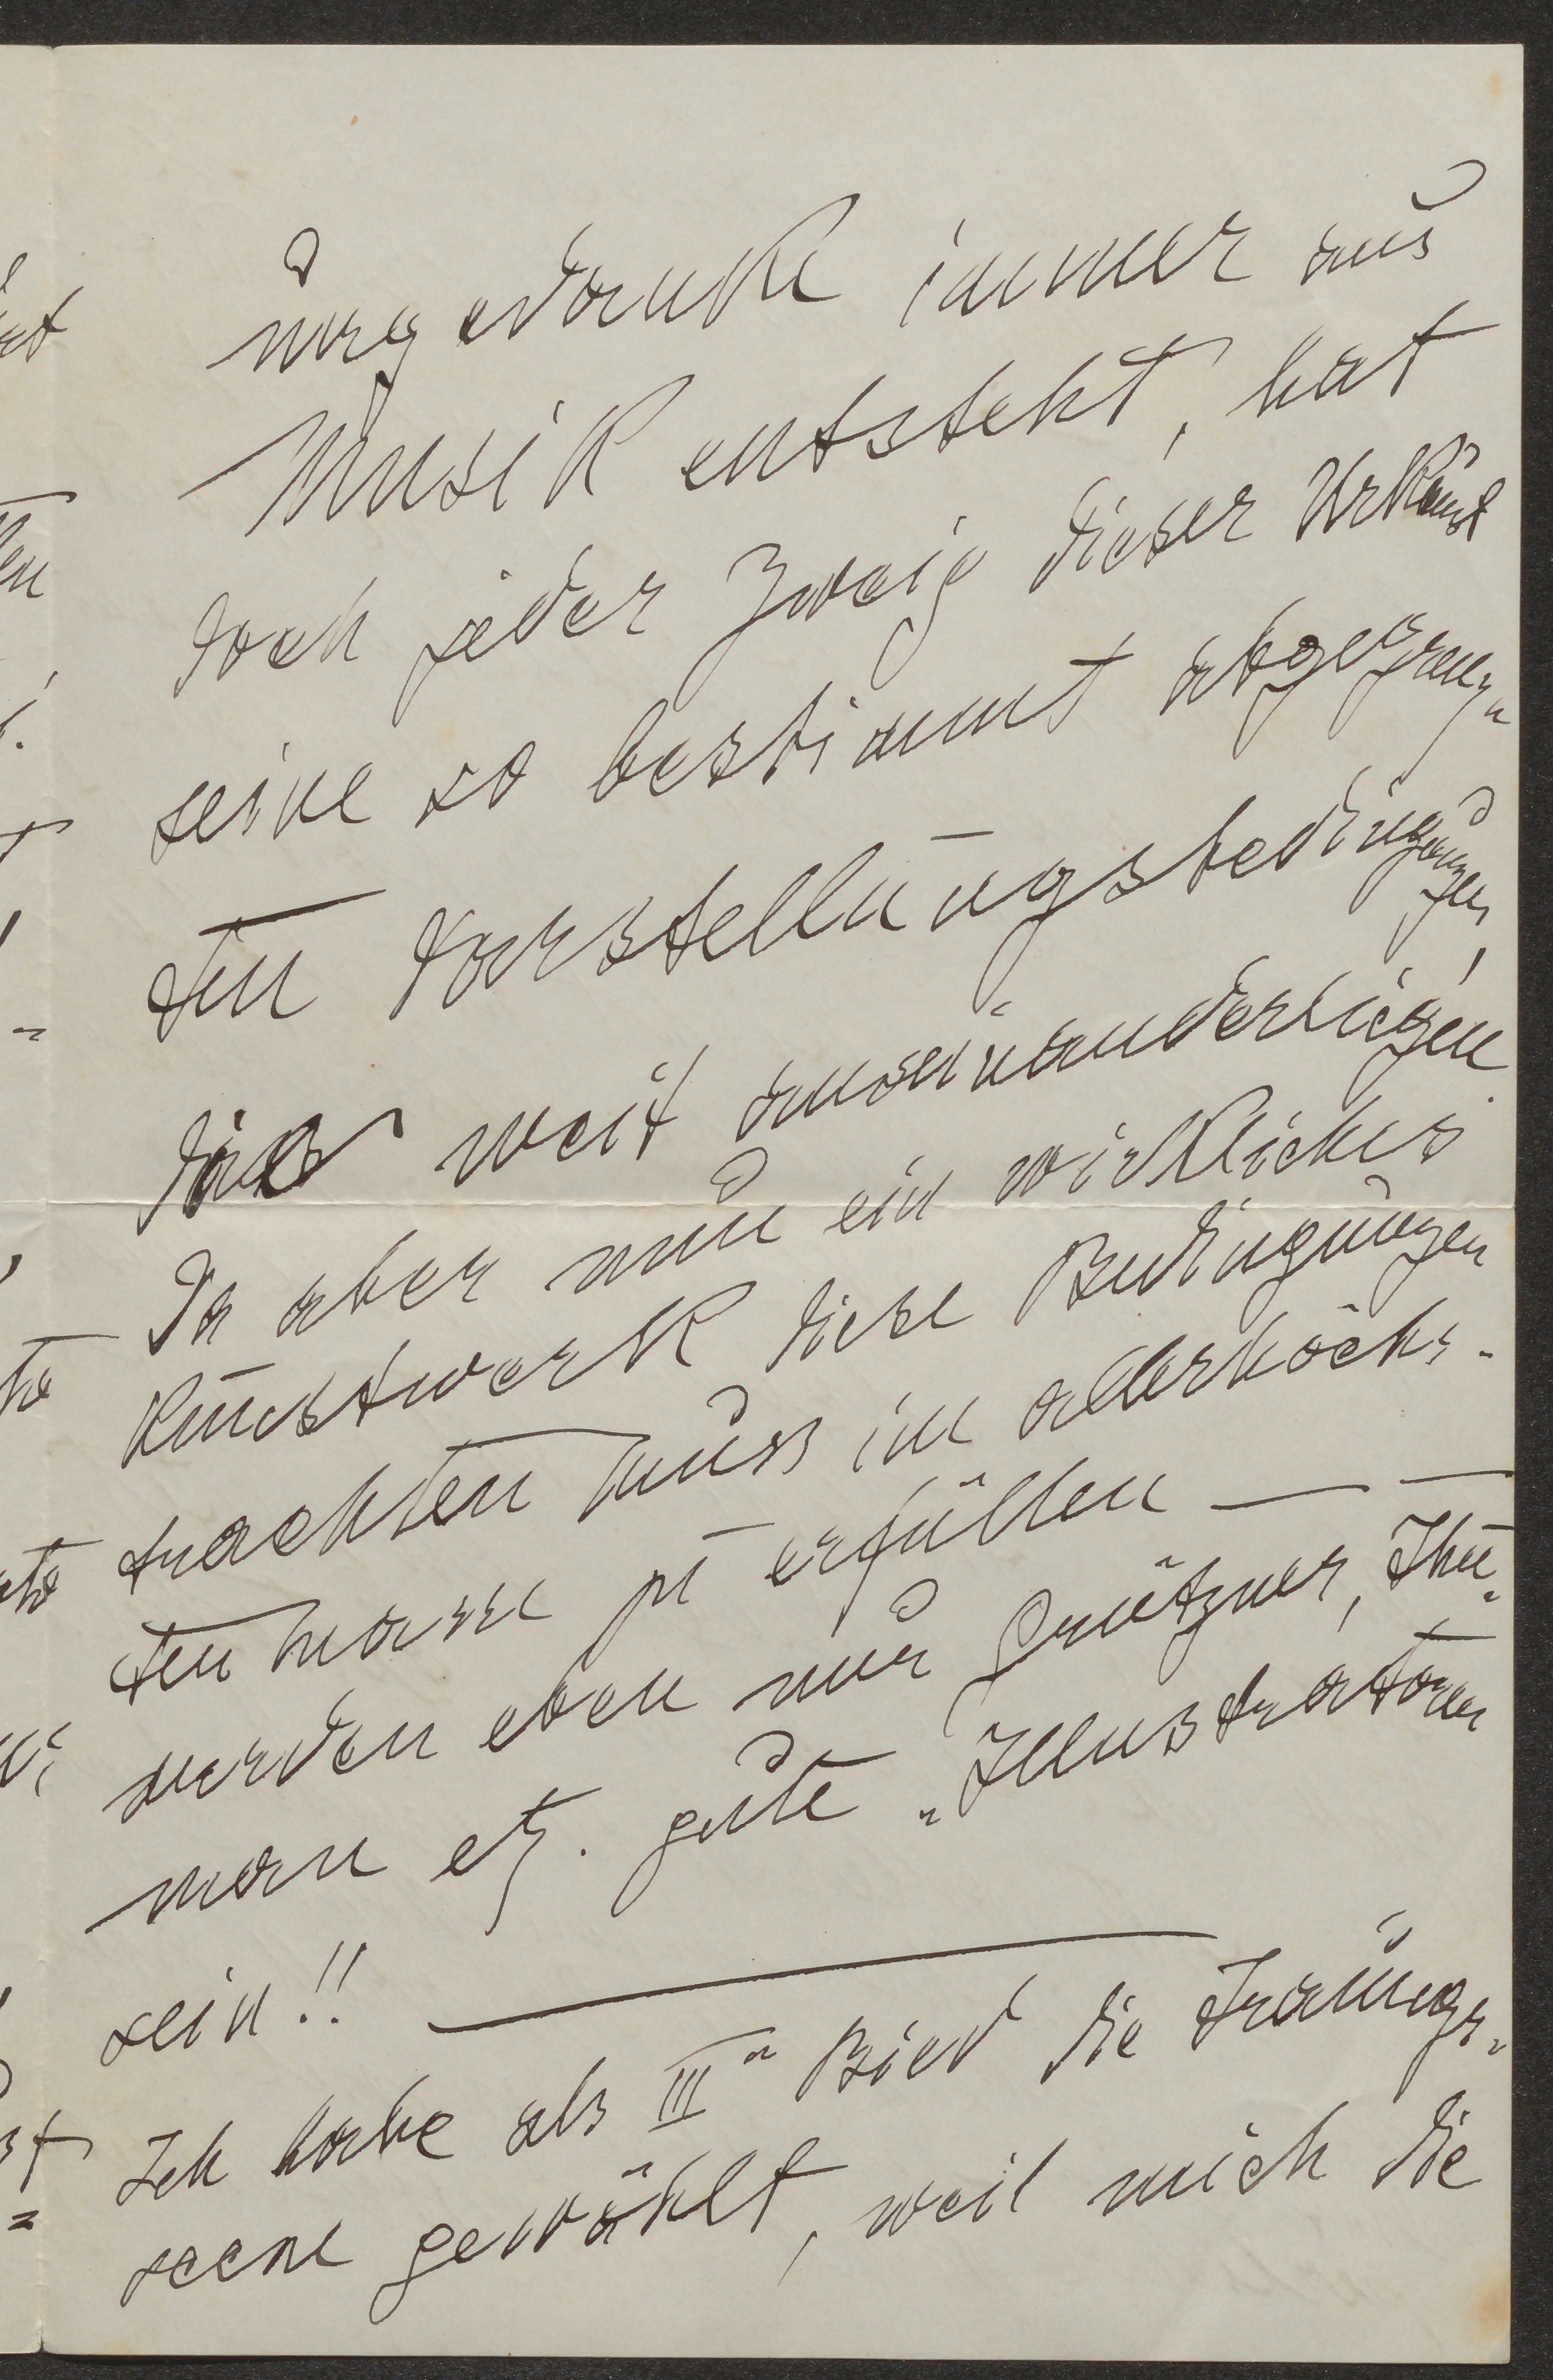 urgedanke immer aus
Musik entsteht, hat
doch jeder Zweig dieser Urkunst
seine so bestimmt abgegrenz„
ten Darstellungsbedingungen,
die weit auseinanderliegen.
Da aber nun ein wirkliches
Kunstwerk diese Bedingungen
trachten muss im allerhöchs-
ten masse zu erfüllen — —
werden eben nur Grützner, Thu„
mann etz. gute „Illustratoren
sein!! —
Ich habe als III" Bied die Trauungs„
scene gewählt, weil mich die